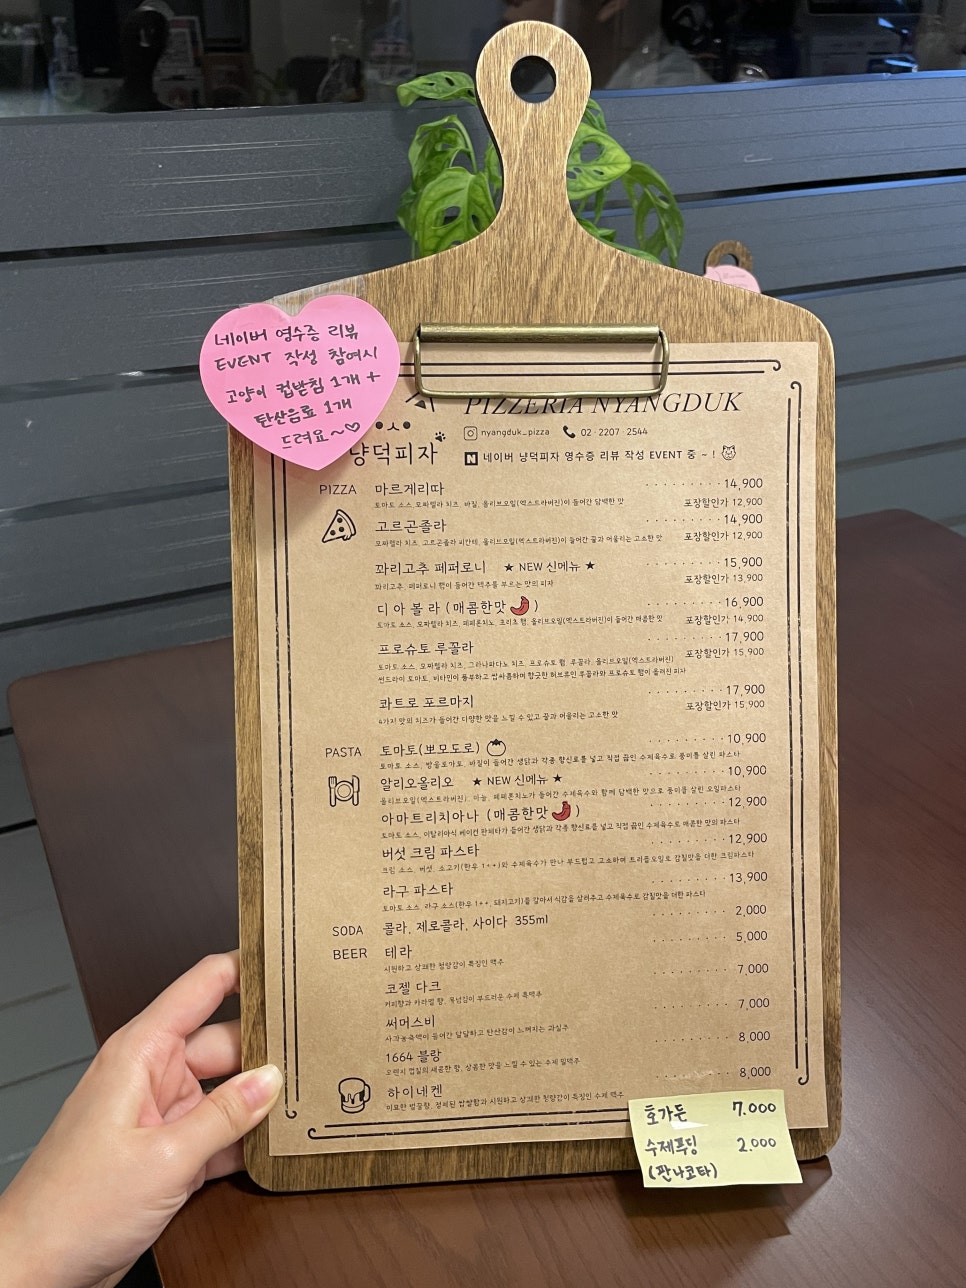 네이버 영수증 리뷰
EVENT 작성 참여시
고양이 컵받침 1개 +
탄산음료 1개
드려요~♡
PIZZERIA NYANGDUK
nyangduk_pizza 02·2207·2544
냥덕피자
N 네이버 냥덕피자 영수증 리뷰 작성 EVENT 중 ~ !
PIZZA 마르게리따 14,900
토마토 소스, 모짜렐라 치즈, 바질, 올리브오일(엑스트라버진)이 들어간 담백한 맛 포장할인가 12,900
고르곤졸라 14,900
모짜렐라 치즈, 고르곤졸라 피칸테, 올리브오일(엑스트라버진)이 들어간 꿀과 어울리는 고소한 맛 포장할인가 12,900
꽈리고추 페퍼로니 ★ NEW 신메뉴 ★ 15,900
꽈리고추, 페퍼로니 햄이 들어간 맥주를 부르는 맛의 피자 포장할인가 13,900
디아볼라 (매콤한맛) 16,900
토마토 소스, 모짜렐라 치즈, 페페론치노, 초리조 햄, 올리브오일(엑스트라버진)이 들어간 매콤한 맛 포장할인가 14,900
프로슈토 루꼴라 17,900
토마토 소스, 모짜렐라 치즈, 그라나파다노 치즈, 프로슈토 햄, 루꼴라, 올리브오일(엑스트라버진) 포장할인가 15,900
썬드라이 토마토, 비타민이 풍부하고 쌉싸름하며 향긋한 허브류인 루꼴라와 프로슈토 햄이 올려진 피자
콰트로 포르마지 17,900
4가지 맛의 치즈가 들어간 다양한 맛을 느낄 수 있고 꿀과 어울리는 고소한 맛 포장할인가 15,900
PASTA 토마토(뽀모도로) 10,900
토마토 소스, 방울토마토, 바질이 들어간 생닭과 각종 향신료를 넣고 직접 끓인 수제육수로 풍미를 살린 파스타
알리오올리오 ★ NEW 신메뉴 ★ 10,900
올리브오일(엑스트라버진), 마늘, 페페론치노가 들어간 수제육수와 함께 담백한 맛으로 풍미를 살린 오일파스타
아마트리치아나 (매콤한맛) 12,900
토마토 소스, 이탈리아식 베이컨 판체타가 들어간 생닭과 각종 향신료를 넣고 직접 끓인 수제육수로 매콤한 맛의 파스타
버섯 크림 파스타 12,900
크림 소스, 버섯, 소고기(한우 1++)와 수제육수가 만나 부드럽고 고소하며 트러플오일로 감칠맛을 더한 크림파스타
라구 파스타 13,900
토마토 소스, 라구 소스(한우 1++, 돼지고기)를 갈아서 식감을 살려주고 수제육수로 감칠맛을 더한 파스타
SODA 콜라, 제로콜라, 사이다 355ml 2,000
BEER 테라 5,000
시원하고 상쾌한 청량감이 특징인 맥주
코젤 다크 7,000
커피향과 카라멜 향, 목넘김이 부드러운 수제 흑맥주
써머스비 7,000
사과농축액이 들어간 달달하고 탄산감이 느껴지는 과실주
1664 블랑 8,000
오렌지 껍질의 새콤한 향, 상큼한 맛을 느낄 수 있는 수제 밀맥주
하이네켄 8,000
미묘한 벌꿀향, 정제된 쌉쌀함과 시원하고 상쾌한 청량감이 특징인 수제 맥주
호가든 7.000
수제푸딩 2.000
(판나코타)